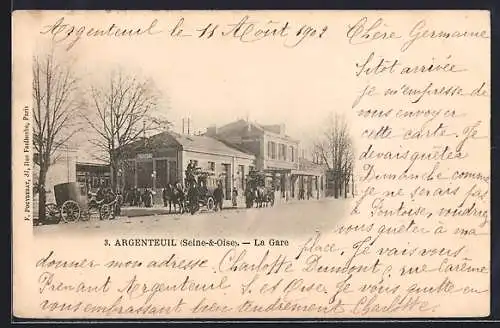 Argenteuil le 18 Août 1902
Chère Germaine
Sitôt arrivée
je m'empresse de
vous envoyer
cette carte. Je
devais quêter
Dimanche comme
je ne serais pas
à Pontoise, voudriez
vous quêter à ma
place. Je vais vous
donner mon adresse. Charlotte Dumont, rue Carême
Prenant Argenteuil S. et Oise. Je vous quitte en
vous embrassant bien tendrement Charlotte.
3. ARGENTEUIL (Seine-&-Oise). — La Gare
F. POUYDEBAT, 31, Rue Faidherbe, Paris